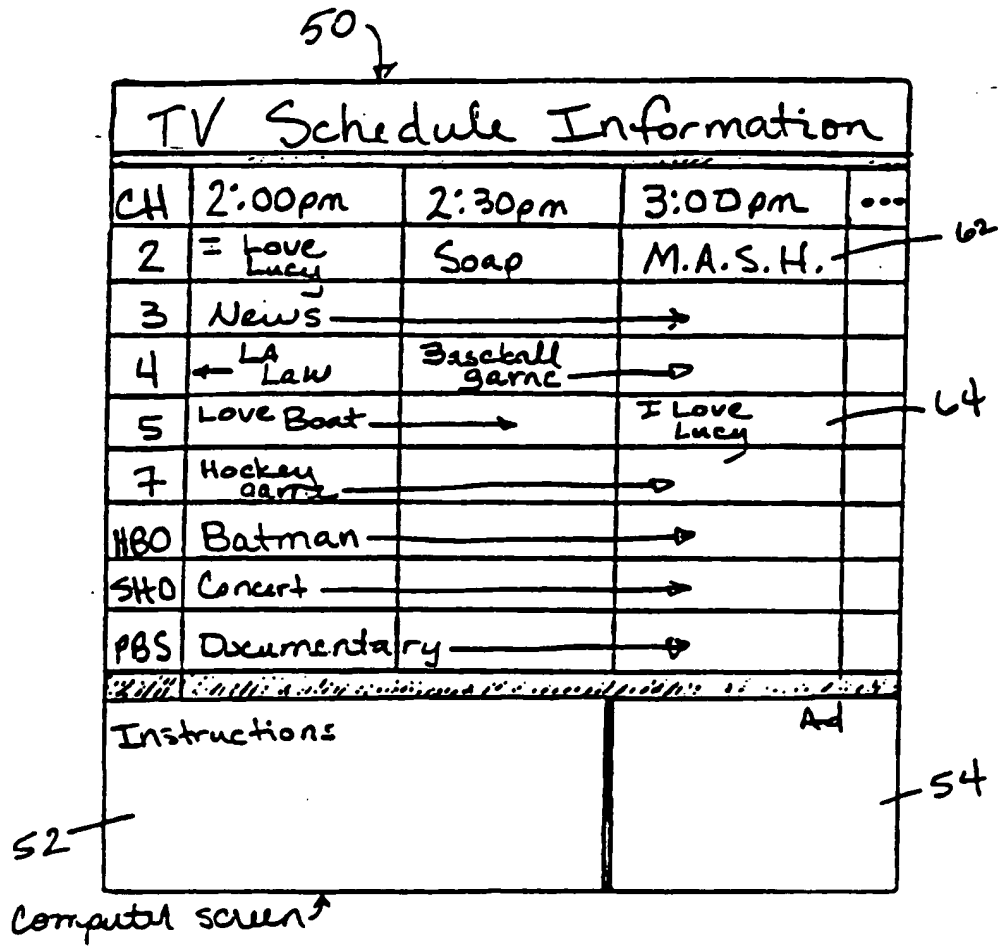 50
TV Schedule Information
CH 2:00pm 2:30pm 3:00pm ...
62
2 I Love Lucy Soap M.A.S.H.
3 News
4 LA Law Baseball game
5 Love Boat I Love Lucy
64
7 Hockey game
HBO Batman
SHO Concert
PBS Documentary
Instructions Ad
54
52
Computer screen